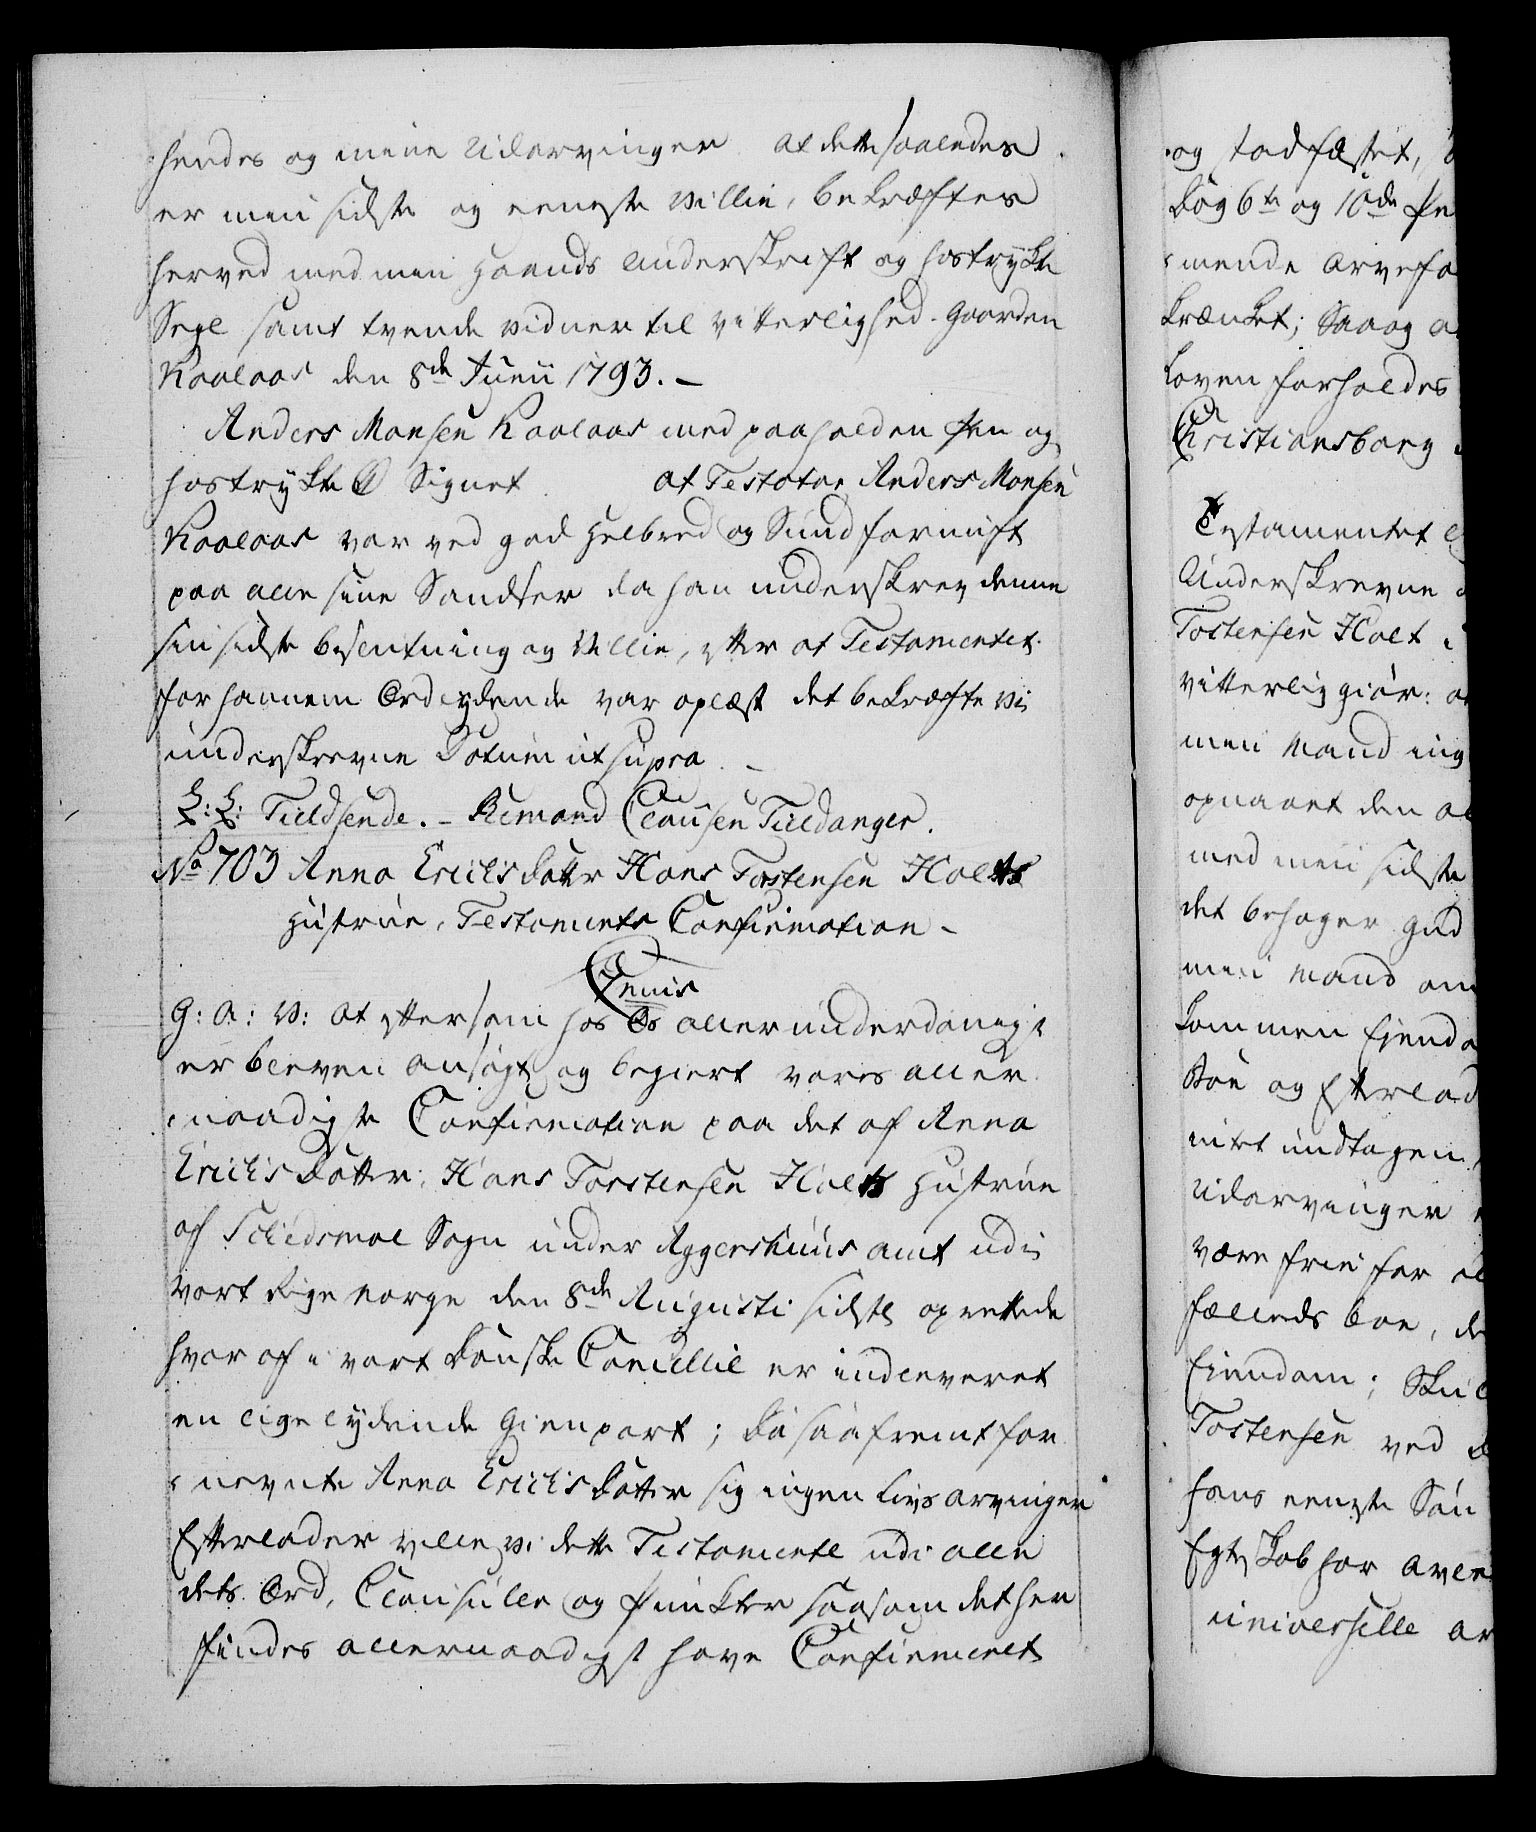 hendes og mine Udarvinger. at dette saaledes
er min sidste og eeneste Villie, bekræftes
herved med min Haands Underskrift og hostrykte
Segl samt tvende Vidner til Vitterlighed. Gaarden
Kaalaas den 8de Junii 1793. –
Anders Monsen Kaalaas med paaholden Pen og
hostrykte Signet. at Testator Anders Monsen
Kaalaas var ved god Helbred og Sund fornuft
paa alle sine Sandser da han underskrev denne
sin sidste beslutning og Villie, efter at Testamentet
for hannem Ordlydende var oplæst det bekræfte vi
underskrevne Datum ut supra. –
L: L: Tieldsende. – Remand Clausen Tieldanger.
No 703 Anna Erichsdatter Hans Torstensen Holts
Hustrue, Testaments Confirmation –
Grenis
G: A: V: at eftersom hos Os allerunderdanigst
er bleven ansøgt og begiert vores aller
naadigste Confirmation paa det af Anna
Erichsdatter, Hans Torstensen Holts Hustrue
af Schedsmoe Sogn under Aggershuus amt udi
vort Rige Norge den 8de Augusti sidstl oprettede
hvoraf i vort Danske Cancellie er indleveret
en ligelydende Gienpart; Da saafremt for
nevnte Anna Erichsdatter sig ingen Livsarvinger
Efterlader ville Vi dette Testamente udi alle
dets Ord, Clausuler og Puncter saasom det her
findes allernaadigst have Confirmeret
og stadfæstet,
dog 6te og 10de Pe
mende Arvefa
krænket; Saa og a
Loven forholdes
Christiansborg
Testamentet
Underskrevne
Tostensen Holt
vitterlig giør: a
min Mand ing
opnaaet den al
med min sidste
det behager Gud
min Mand om
kommen Eienda
Boe og Efterlad
intet undtagen,
Udarvinger
være frie for al
fælleds boe, de
Eiendom; Skul
Tostensen ved
hans eeneste Søn
Egteskab har avle
universelle Ar